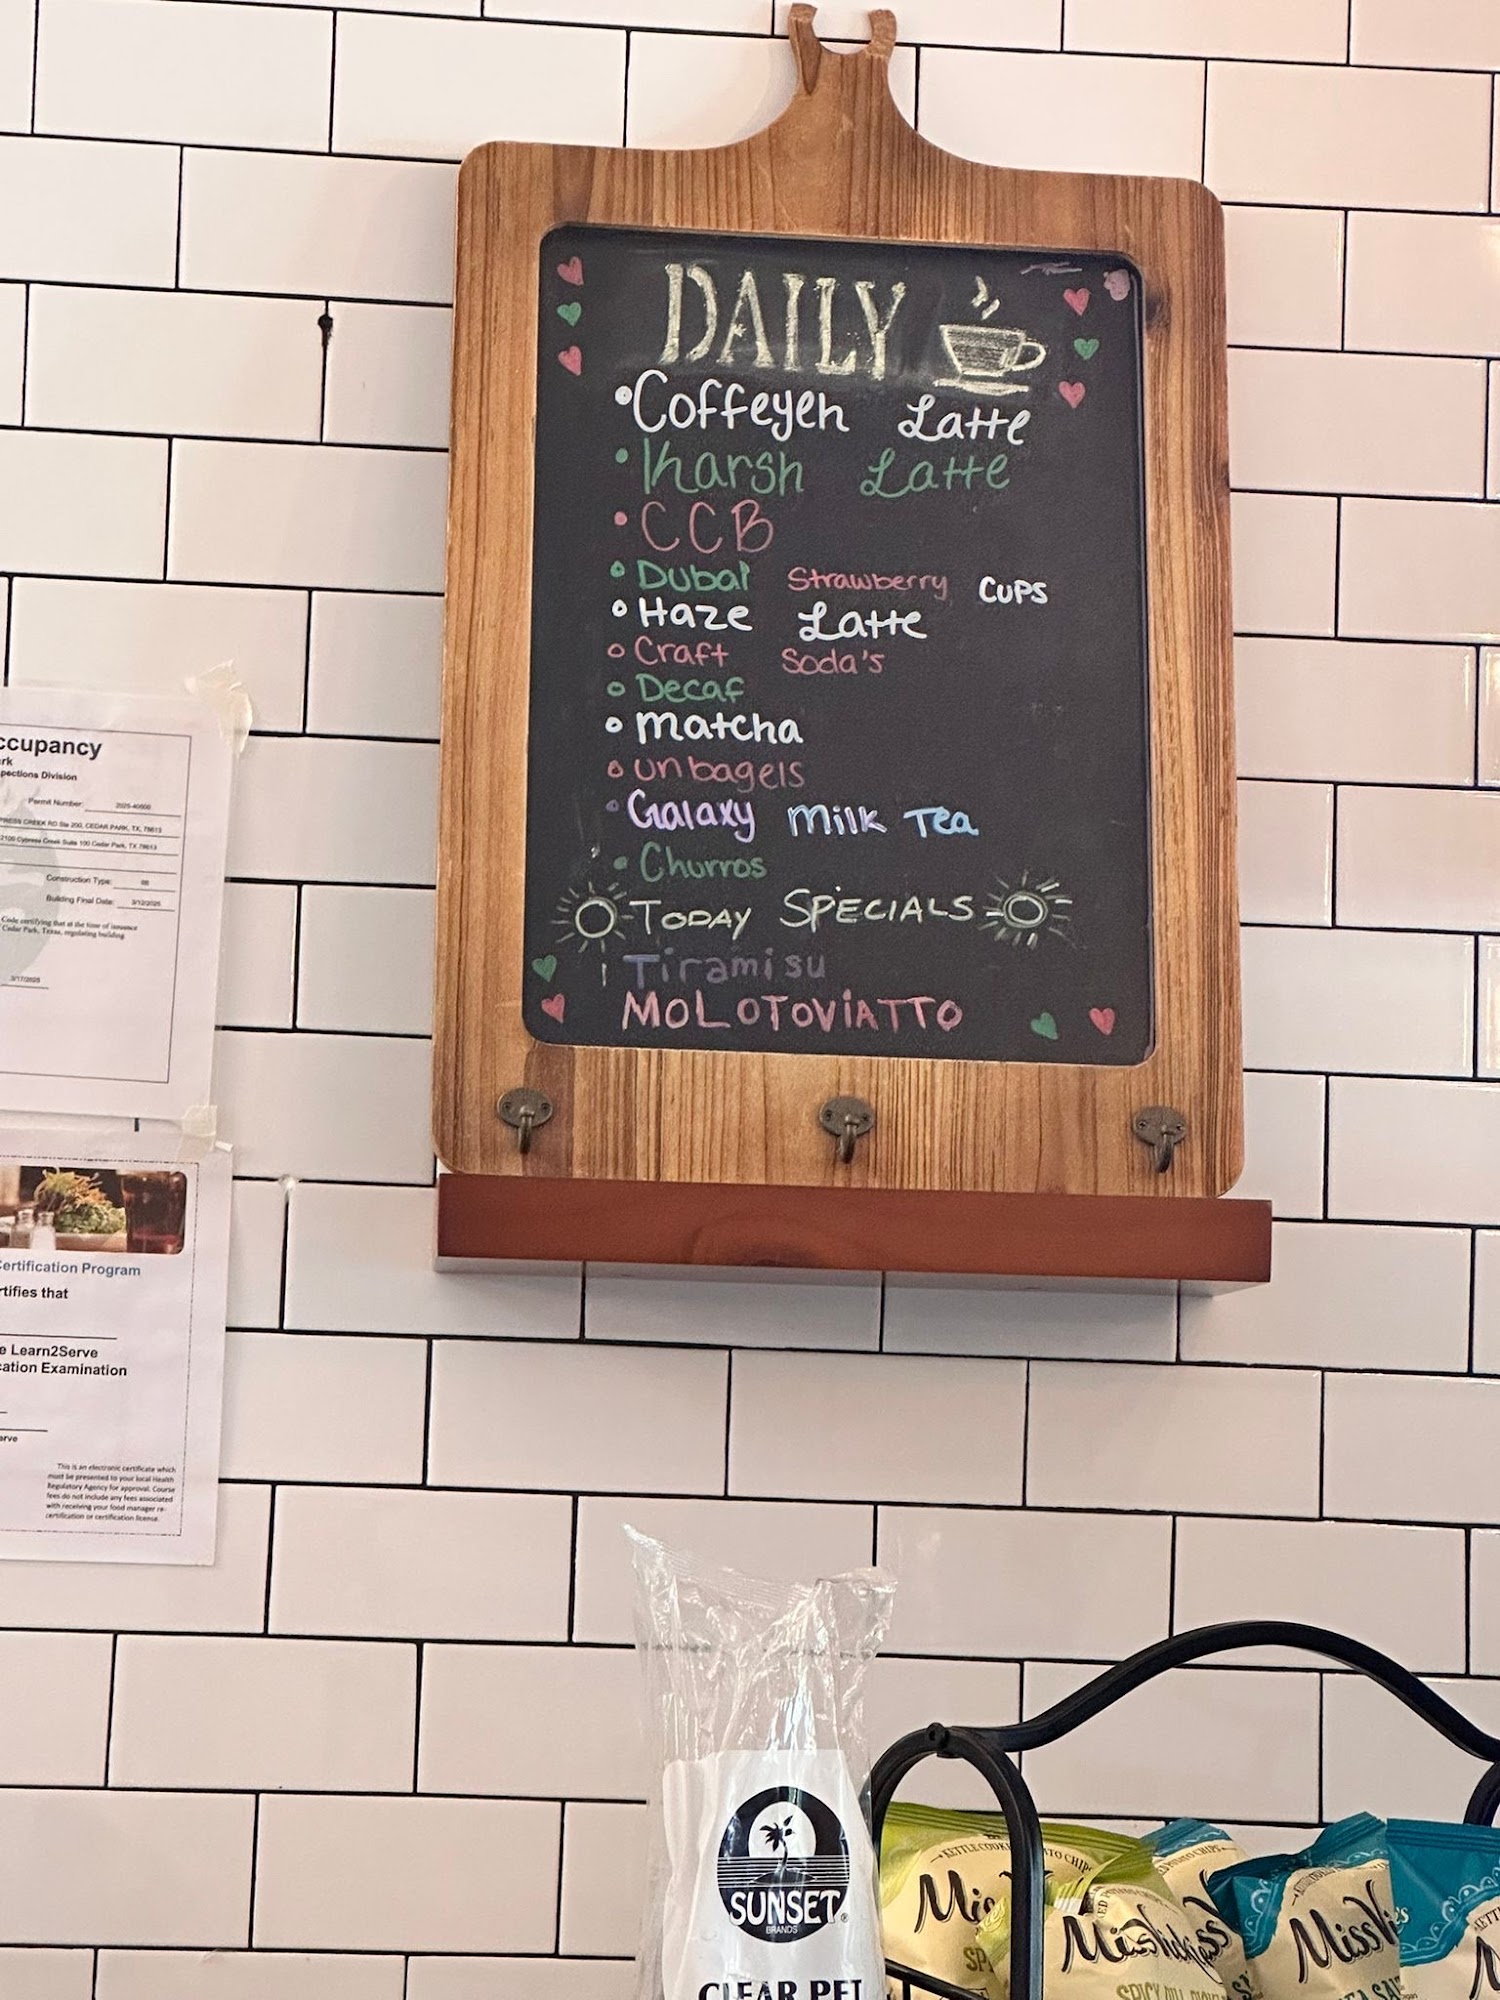 DAILY
Coffeyeh Latte
Karsh Latte
CCB
Dubai Strawberry CUPS
Haze Latte
Craft Soda's
Decaf
Matcha
unbagels
Galaxy Milk Tea
Churros
TODAY SPECIALS
Tiramisu
MOLOTOViATTO
ccupancy
rk
pections Division
Permit Number:
PRESS CREEK RD Ste 200, CEDAR PARK, TX, 78613
2100 Cypress Creek Suite 100 Cedar Park, TX 78613
Construction Type:
Building Final Date: 3/12/2025
Code certifying that at the time of issuance
Cedar Park, Texas, regulating building
3/17/2025
ertification Program
rtifies that
e Learn2Serve
cation Examination
erve
This is an electronic certificate which
must be presented to your local Health
Regulatory Agency for approval. Course
fees do not include any fees associated
with receiving your food manager re-
certification or certification license.
SUNSET
BRANDS
CLEAR PET
KETTLE COOKED POTATO CHIPS
Mis
SP
Miss Vickie's
SPICY DILL PICKLE
Miss Vi
SEA SALT